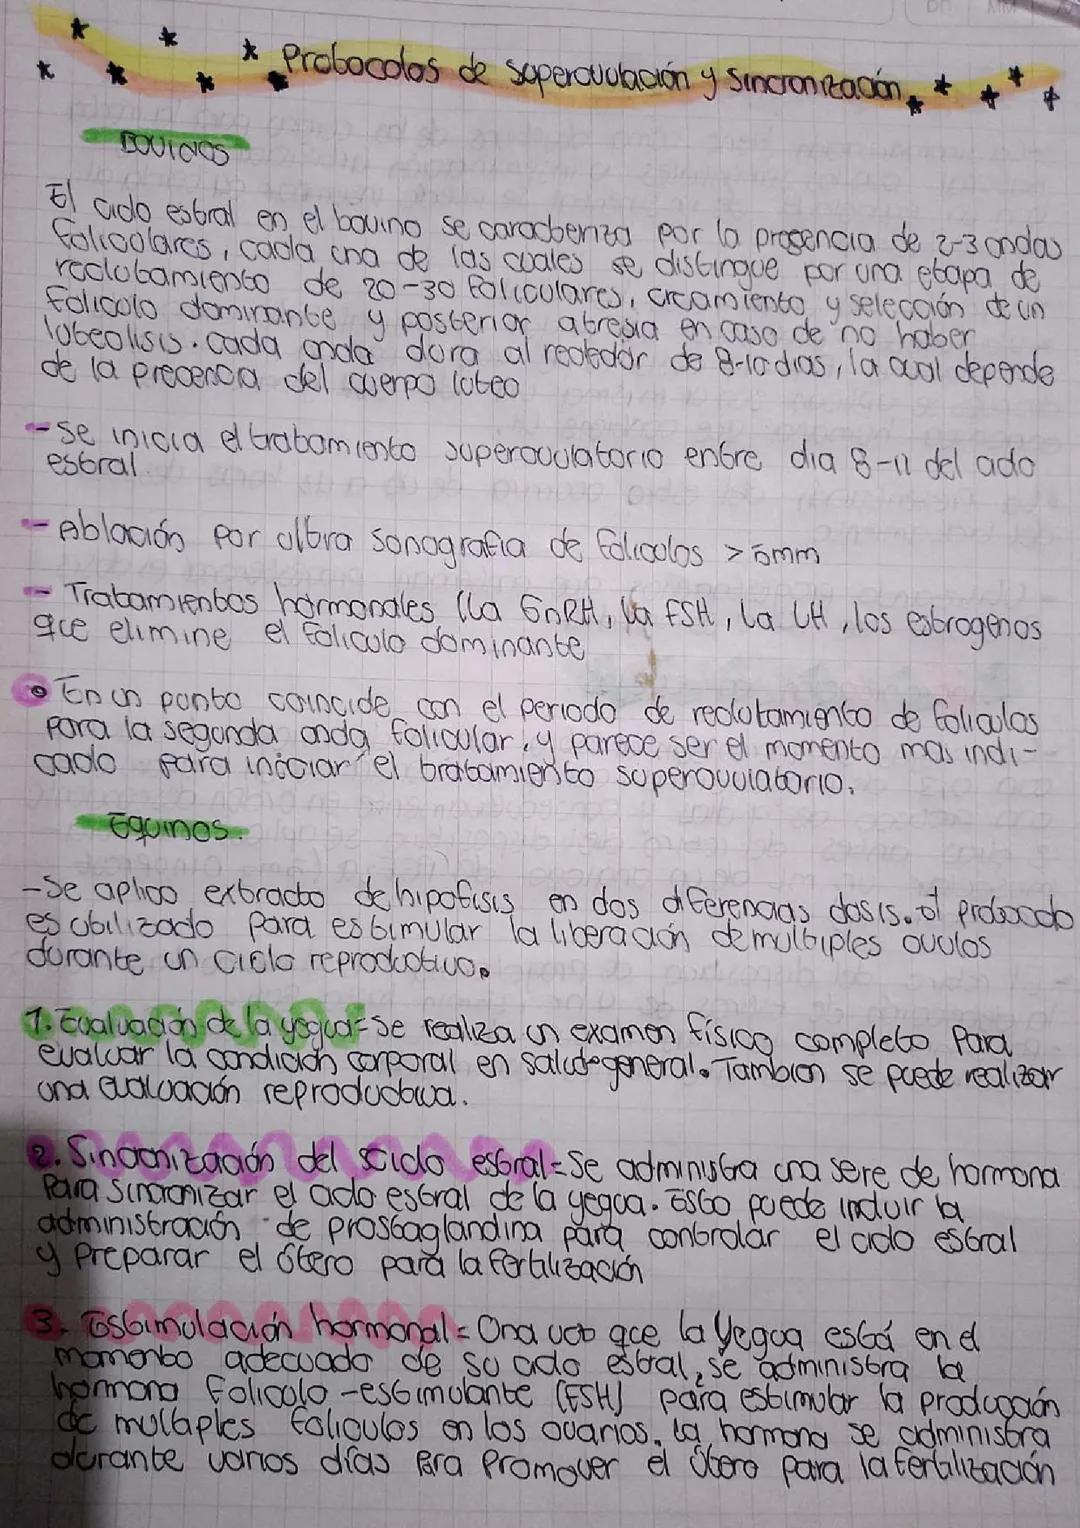 Protocolos de Superovulación y Sincronización.
Bovinos
El ciclo estral en el bovino se caracteriza por la presencia de 2-3 ondas
foliculares, cada una de las cuales se distingue por una etapa de
reclutamiento de 20-30 foliculares, creamiento y selección de un
folículo dominante y posterior atresia en caso de no haber
luteolisis. cada onda dura al rededor de 8-10 dias, la cual depende
de la precencia del cuerpo luteo
- Se inicia el tratamiento superovulatorio entre dia 8-11 del ciclo
estral.
- Ablación por ultra sonografia de foliculos > 5mm
- Tratamientos hormonales (la GnRH, la FSH, la LH, los estrogenos
que elimine el folículo dominante
• En un punto coincide con el periodo de reclutamiento de foliculos
para la segunda onda folicular, y parece ser el momento mas indi-
cado para iniciar el tratamiento superovulatorio.
Equinos.
- Se aplica extracto de hipofisis en dos diferencias dosis. el protocolo
es utilizado para estimular la liberación de multiples ovulos
durante un ciclo reproductivo.
1. Evaluación de la yegua = Se realiza un examen físico completo para
evaluar la condición corporal en salud general. Tambien se puede realizar
una evaluación reproductiva.
2. Sincronización del ciclo estral = Se administra una serie de hormona
para sincronizar el ciclo estral de la yegua. Esto puede incluir la
administración de prostaglandina para controlar el ciclo estral
y preparar el útero para la fertilización
3. Estimulación hormonal = Una vez que la Yegua está en el
momento adecuado de su ciclo estral, se administra la
hormona folículo-estimulante (FSH) para estimular la producción
de multiples foliculos en los ovarios. La hormona se administra
durante varios días para promover el útero para la fertilización